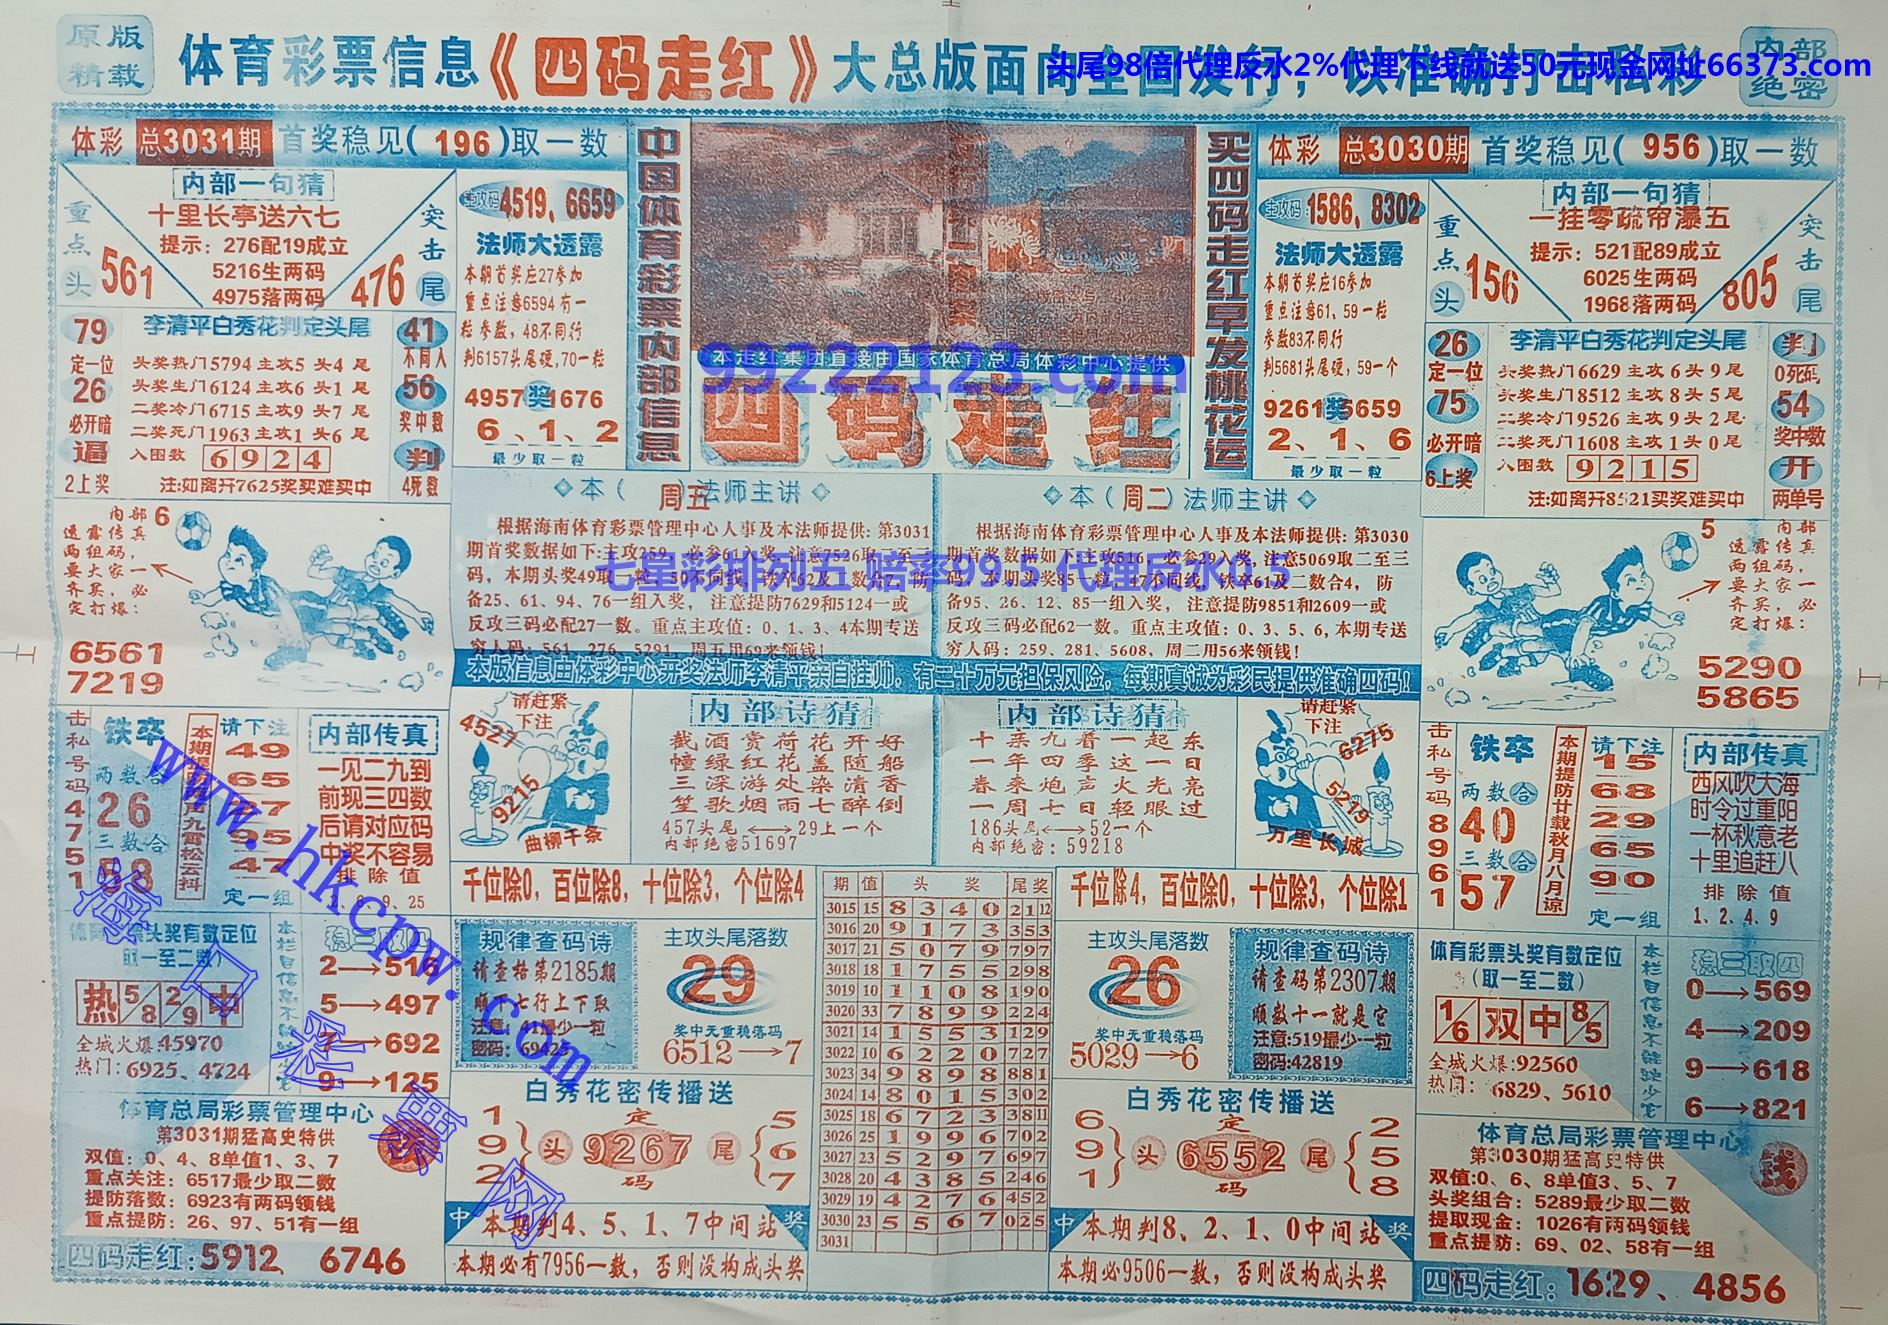 原版
精载
体育彩票信息《四码走红》大总版面向全国发行，以准确打击私彩
头尾98倍代理反水2%代理下线就送50元现金网址66373.com
内部
绝密
体彩 总3031期 首奖稳见(196)取一数
内部一句猜
十里长亭送六七
提示：276配19成立
5216生两码
4975落两码
重点头
561
突击尾
476
主攻码 4519、6659
法师大透露
本期首奖应27参加
重点注意6594有一
粒参数，48不同行
判6157头尾硬,70一粒
4957 奖 1676
6、1、2
最少取一粒
79
定一位
26
必开暗
逼
2上奖
李清平白秀花判定头尾
头奖热门5794主攻5头4尾
头奖生门6124主攻6头1尾
二奖冷门6715主攻9头7尾
二奖死门1963主攻1头6尾
入围数 6924
注:如离开7625奖买难买中
41
不同人
56
奖中数
判
4死数
中国体育彩票内部信息
本走红集团直接由国家体育总局体彩中心提供
99222123.com
四码走红
买四码走红草发桃花运
体彩 总3030期 首奖稳见(956)取一数
内部一句猜
一挂零疏帘瀑五
提示：521配89成立
6025生两码
1968落两码
重点头
156
突击尾
805
主攻码 1586、8302
法师大透露
本期首奖应16参加
重点注意61、59一粒
参数83不同行
判5681头尾硬，59一个
9261 奖 5659
2、1、6
最少取一粒
26
定一位
75
必开暗
6上奖
李清平白秀花判定头尾
头奖热门6629主攻6头9尾
头奖生门8512主攻8头5尾
二奖冷门9526主攻9头2尾
二奖死门1608主攻1头0尾
入围数 9215
注:如离开8521买奖难买中
判
0死码
54
奖中数
开
两单号
本（周五）法师主讲
根据海南体育彩票管理中心人事及本法师提供：第3031
期首奖数据如下:主攻259，必参61入奖,注意7526取二至三
码，本期头奖49取一粒，50不同线，铁卒62及二数合7，防
备25、61、94、76一组入奖，注意提防7629和5124一或
反攻三码必配27一数。重点主攻值：0、1、3、4本期专送
穷人码：561、276、5291，周五用69来领钱！
本（周二）法师主讲
根据海南体育彩票管理中心人事及本法师提供：第3030
期首奖数据如下:主攻516，必参29入奖,注意5069取二至三
码，本期头奖85一粒，47不同线，铁卒61及二数合4，防
备95、26、12、85一组入奖，注意提防9851和2609一或
反攻三码必配62一数。重点主攻值：0、3、5、6,本期专送
穷人码：259、281、5608，周二用56来领钱！
七星彩排列五 赔率99.5 代理反水
本版信息由体彩中心开奖法师李清平亲自挂帅。有二十万元担保风险。每期真诚为彩民提供准确四码！
内部
透露传真
两组码，
要大家一
齐买，必
定打爆：
6
6561
7219
5
内部
透露传真
两组码，
要大家一
齐买，必
定打爆：
5290
5865
击私号码 47511
铁卒
两数合
26
三数合
58
请下注
49
65
27
95
47
定一组
内部传真
一见二九到
前现三四数
后请对应码
中奖不容易
排除值
请赶紧
下注
4527
9215
曲柳千条
内部诗猜
截酒赏荷花开好
幢绿红花盖随船
三深游处染清香
笙歌烟雨七醉倒
457头尾⟷29上一个
内部绝密51697
内部诗猜
十亲九着一起东
一年四季这一日
春来炮声火光亮
一周七日轻眼过
186头尾⟷52一个
内部绝密：59218
请赶紧
下注
6275
5219
万里长城
击私号码 89661
铁卒
两数合
40
三数合
57
本期提防廿载秋月八月谅
请下注
15
68
29
65
90
定一组
内部传真
西风吹大海
时令过重阳
一杯秋意老
十里追赶八
排除值
1、2、4、9
千位除0，百位除8，十位除3，个位除4
千位除4，百位除0，十位除3，个位除1
期 值 头奖 尾奖
3015 15 8340 21 12
3016 20 9173 353
3017 21 5079 797
3018 18 1755 298
3019 10 1108 190
3020 33 7899 224
3021 14 1553 129
3022 10 6220 727
3023 34 9898 881
3024 14 8015 302
3025 18 6723 38 11
3026 25 1996 702
3027 23 5297 697
3028 20 4385 246
3029 19 4276 452
3030 23 5567 025
3031
头奖有数定位
(取一至二数)
热 5/8 2/9 中
全城火爆:45970
热门：6925、4724
稳三取四
2→516
5→497
7→692
9→125
规律查码诗
请查格第2185期
顺 七行上下取
主攻头尾落数
29
奖中无重稳落码
6512→7
主攻头尾落数
26
奖中无重稳落码
5029→6
规律查码诗
请查码第2307期
顺数十一就是它
注意:519最少一粒
密码:42819
体育彩票头奖有数定位
(取一至二数)
1/6 双中 8/5
全城火爆:92560
热门：6829、5610
稳三取四
0→569
4→209
9→618
6→821
体育总局彩票管理中心
第3031期猛高史特供
双值：0、4、8单值1、3、7
重点关注：6517最少取二数
提防落数：6923有两码领钱
重点提防：26、97、51有一组
四码走红：5912、6746
白秀花密传播送
1
9
2
头
定
9267
码
尾
5
6
7
中 本期判4、5、1、7中间站 奖
本期必有7956一数，否则没构成头奖
白秀花密传播送
6
9
1
头
定
6552
码
尾
2
5
8
中 本期判8、2、1、0中间站 奖
本期必9506一数，否则没构成头奖
体育总局彩票管理中心
第3030期猛高史特供
双值:0、6、8单值3、5、7
头奖组合：5289最少取二数
提取现金：1026有两码领钱
重点提防：69、02、58有一组
钱
四码走红：1629、4856
www.hkcpw.com
海口彩票网